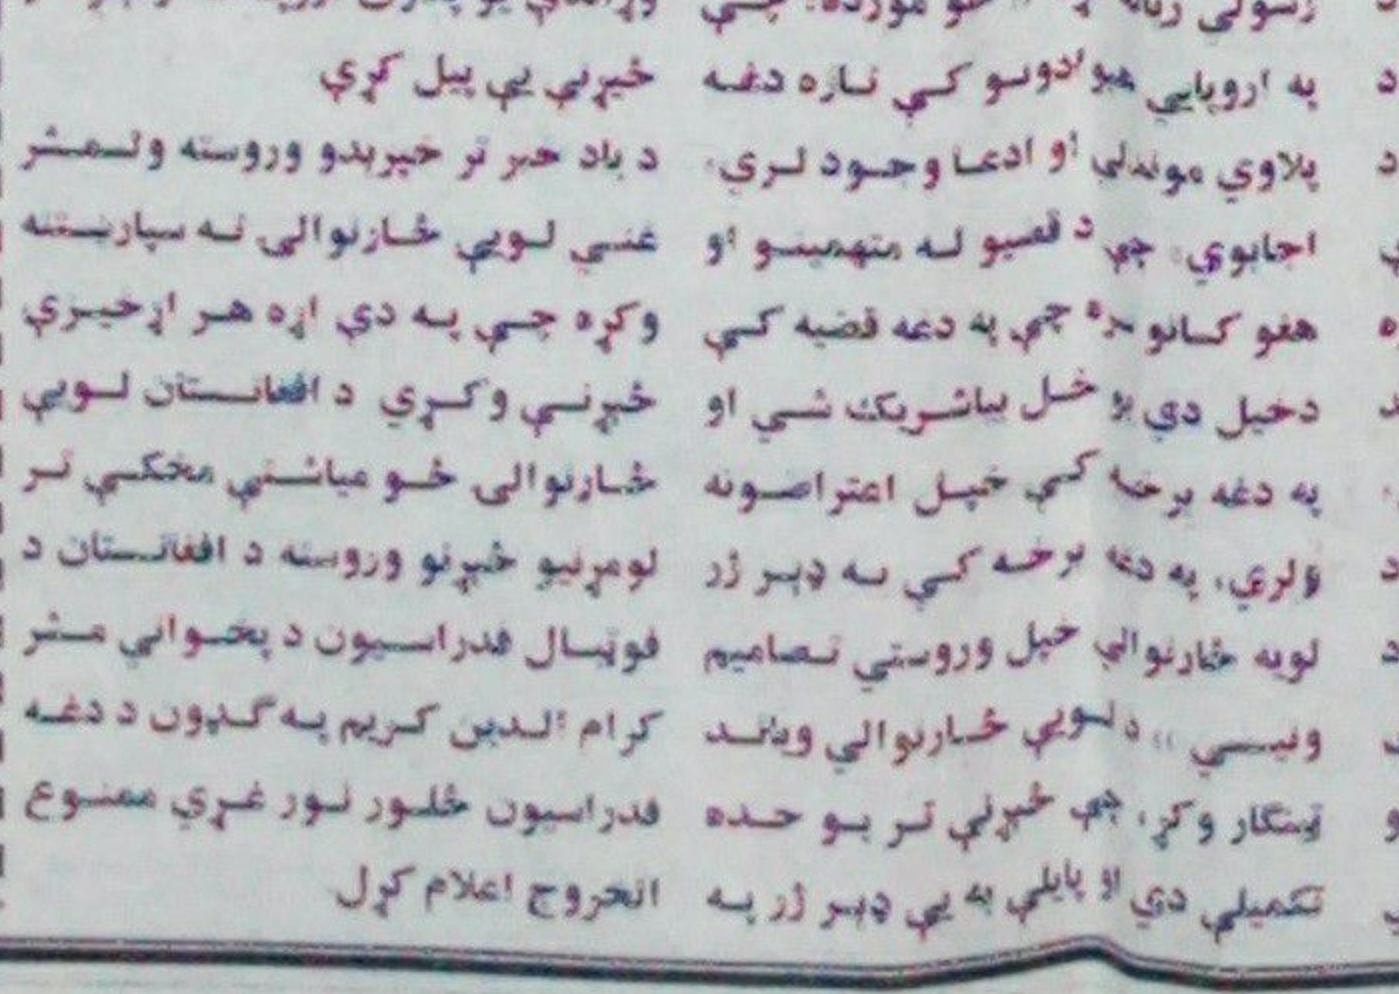 په اروپايي هېوادونو کې ناره دغه
پلاوي موندلي او ادعا وجود لري،
اجابوي، چې د قضيو له متهمينو او
هغو کسانو سره چې په دغه قضيه کې
دخيل دي يو ځل بياشريک شي او
په دغه برخه کې خپل اعتراضونه
ولري، په دغه برخه کې به ډېر ژر
لويه څارنوالي خپل وروستي تصاميم
ونيسي ،، د لويې څارنوالي وياند
ټينګار وکړ، چې څېړنې تر يو حده
تکميلې دي او پايلې به يې ډېر ژر په
څېړنې يې پيل کړې
د ياد خبر تر خپرېدو وروسته ولسمشر
غني لويې څارنوالۍ ته سپارښتنه
وکړه چې په دې اړه هر اړخيزې
څېړنې وکړي د افغانستان لويې
څارنوالۍ څو مياشتې مخکې تر
لومړنيو څېړنو وروسته د افغانستان د
فوټبال فدراسيون د پخواني مشر
کرام الدين کريم په ګډون د دغه
فدراسيون څلور نور غړي ممنوع
الخروج اعلام کړل